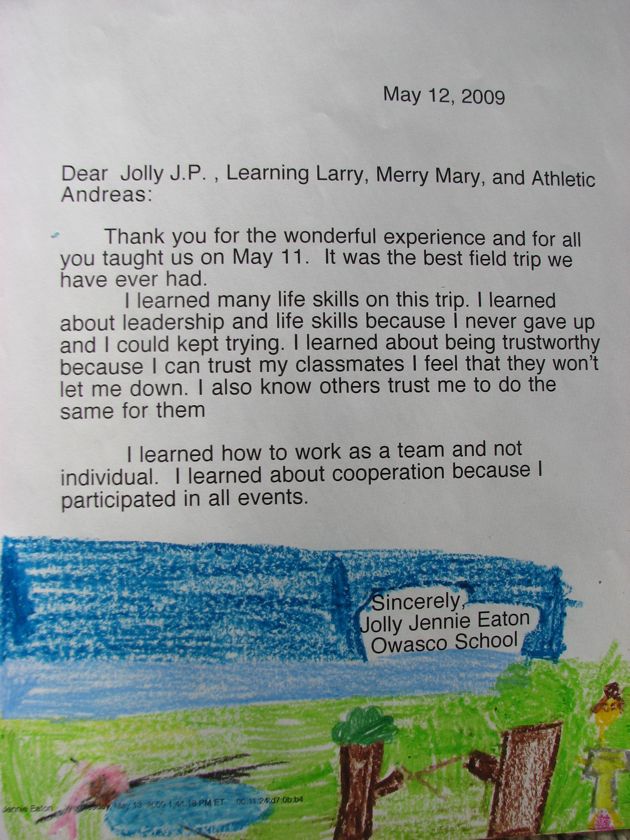 May 12, 2009
Dear Jolly J.P. , Learning Larry, Merry Mary, and Athletic
Andreas:
Thank you for the wonderful experience and for all
you taught us on May 11. It was the best field trip we
have ever had.
I learned many life skills on this trip. I learned
about leadership and life skills because I never gave up
and I could kept trying. I learned about being trustworthy
because I can trust my classmates I feel that they won't
let me down. I also know others trust me to do the
same for them
I learned how to work as a team and not
individual. I learned about cooperation because I
participated in all events.
Sincerely,
Jolly Jennie Eaton
Owasco School
Jennie Eaton May 13, 2009 PM ET